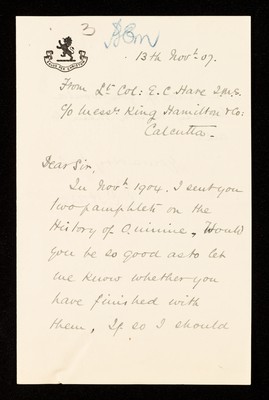 3
13th Novr. 07.
From Lt. Col: E. C Hare I.M.S.
c/o Messrs. King Hamilton & Co:
Calcutta.
Dear Sir,
In Novr. 1904. I sent you
two pamphlets on the
History of Quinine. Would
you be so good as to let
me know whether you
have finished with
them, If so I should